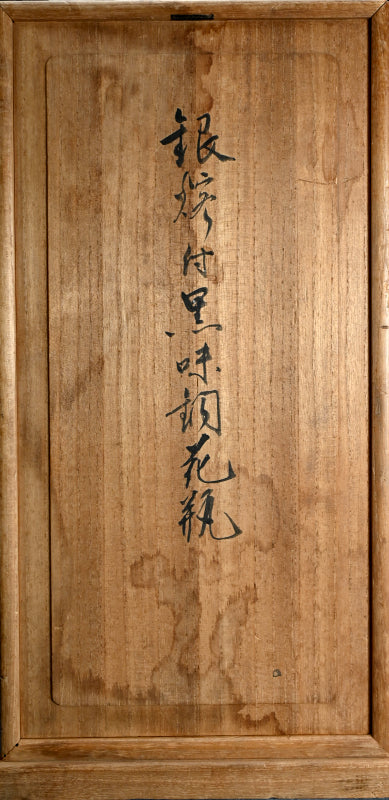 銀熔付黒味銅花瓶